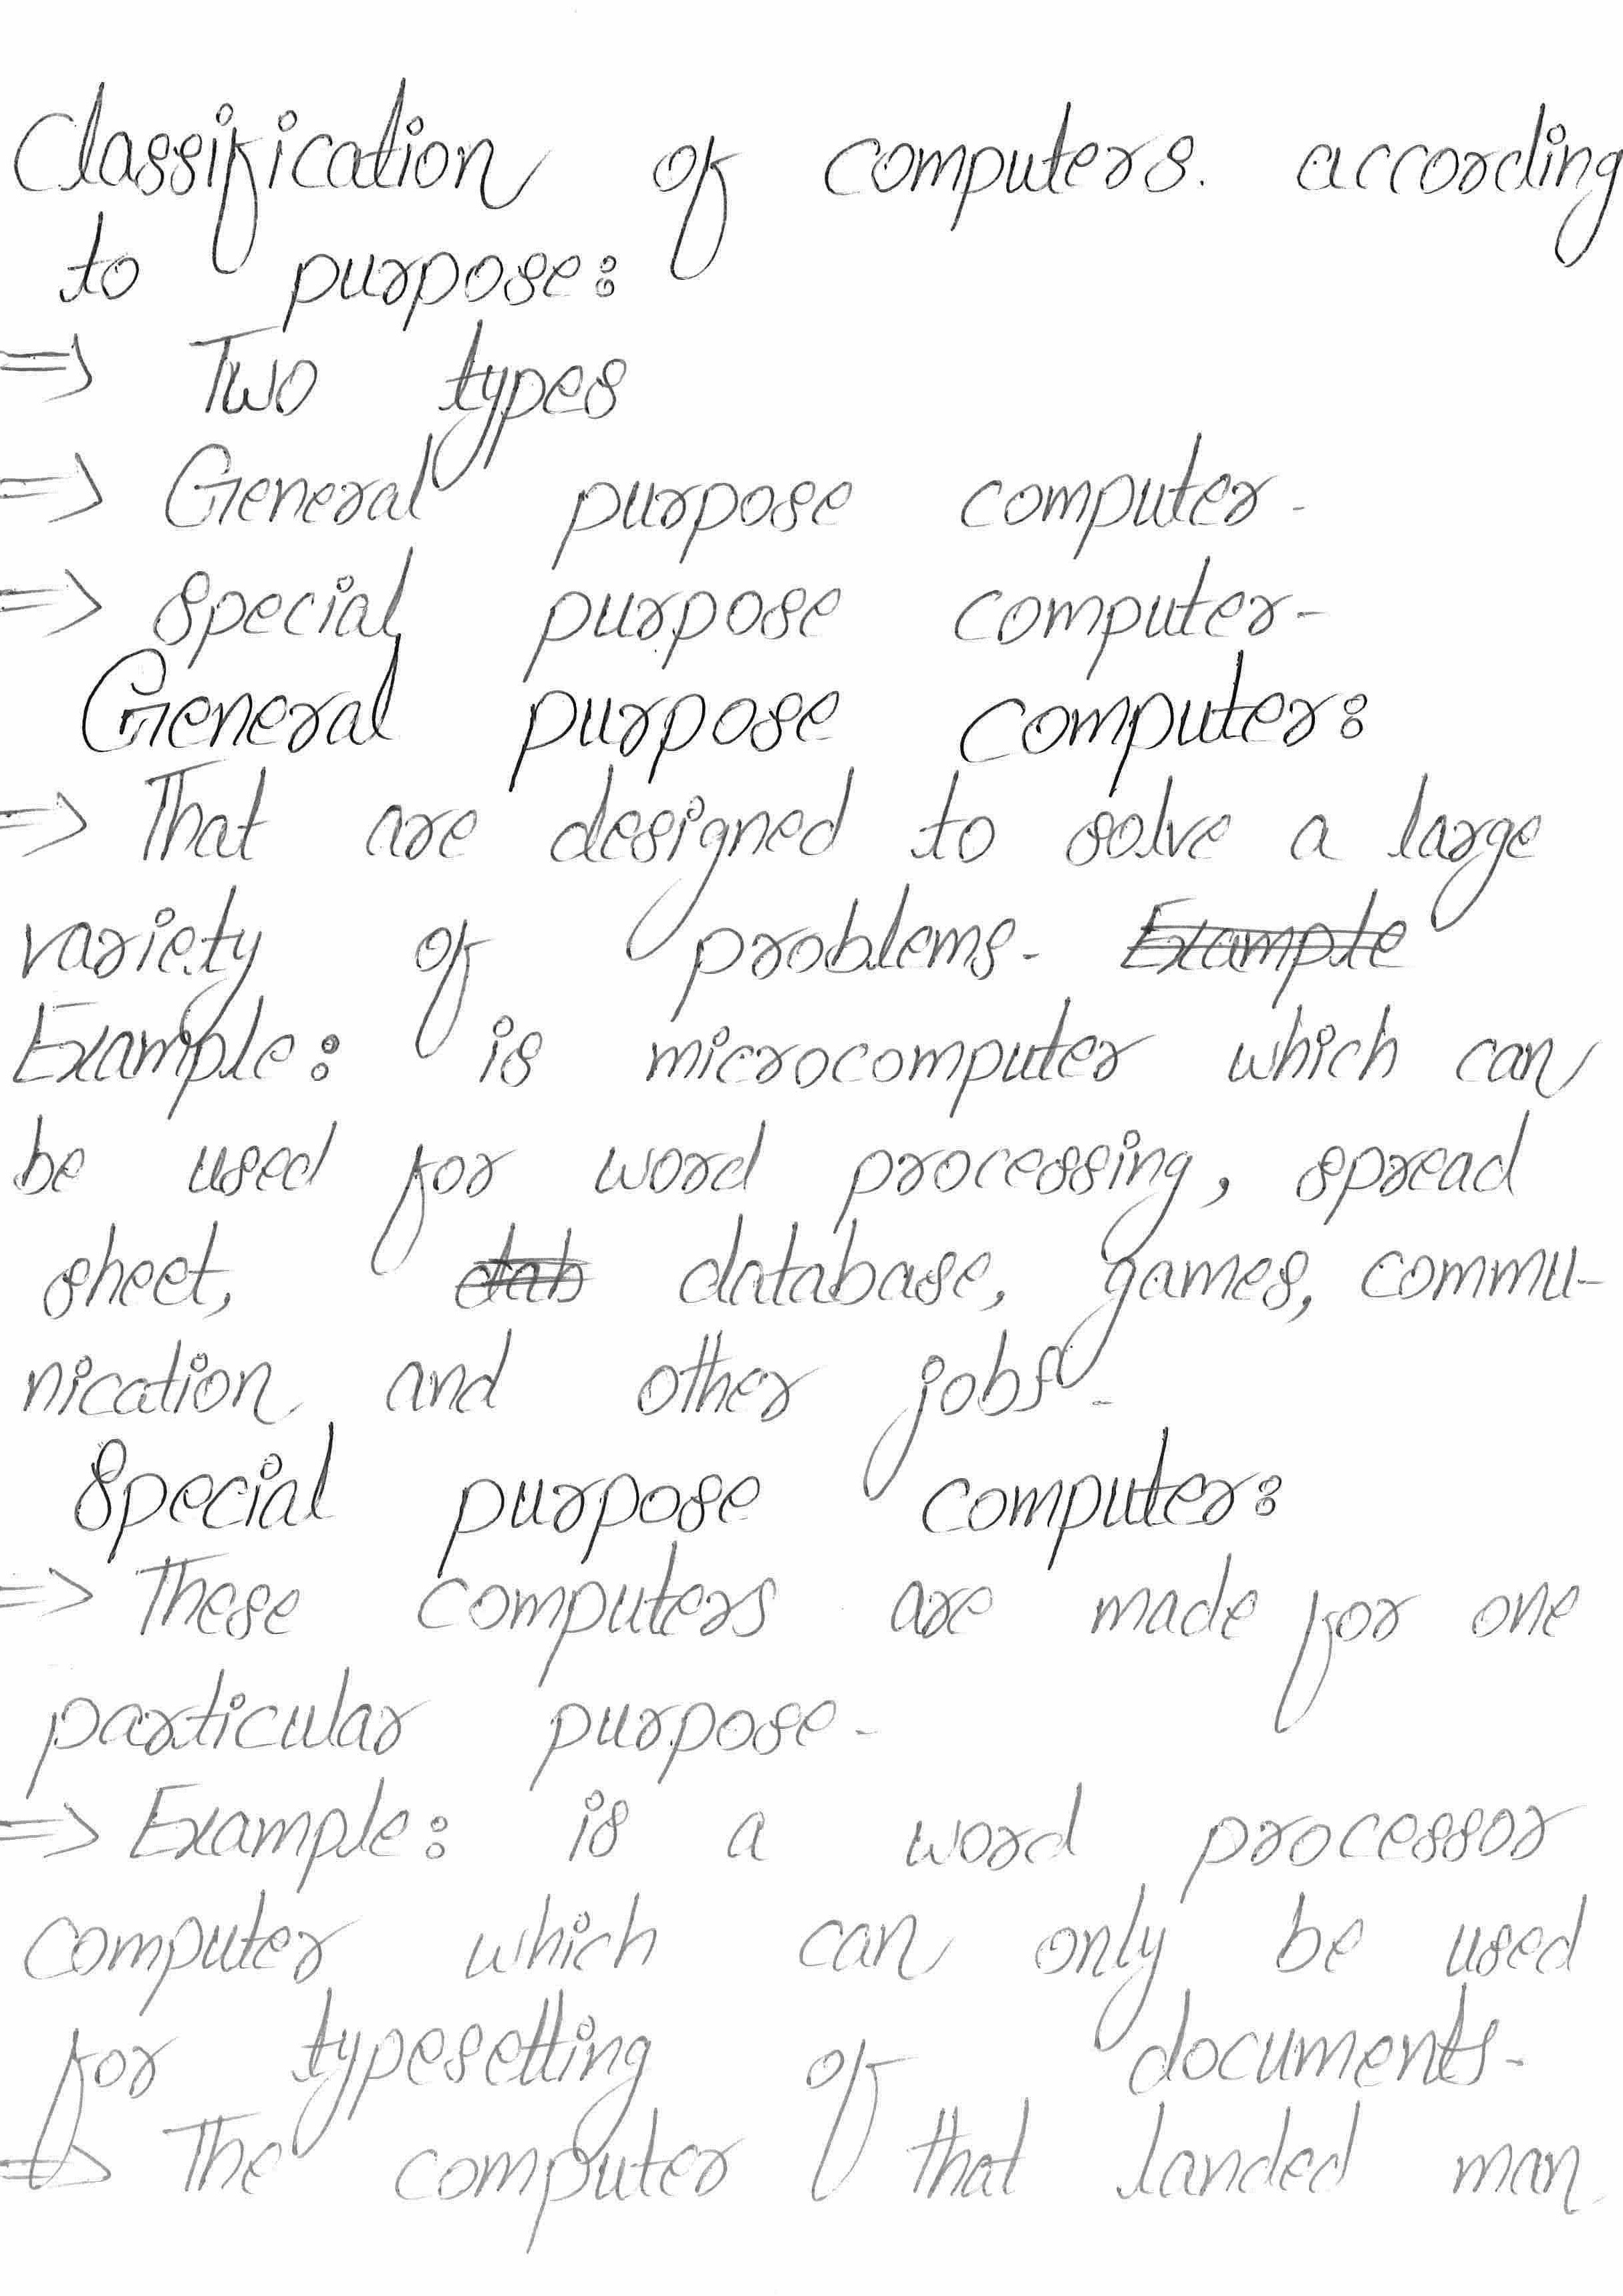 Classification of computers. according
to purpose:
=> Two types
=> General purpose computer-
=> Special purpose computer-
General purpose computer:
=> That are designed to solve a large
variety of problems- Example
Example: is microcomputer which can
be used for word processing, spread
sheet, dab database, games, commu-
nication and other jobs-
Special purpose computer:
=> These computers are made for one
particular purpose-
=> Example: is a word processor
computer which can only be used
for typesetting of documents-
=> The computer that landed man